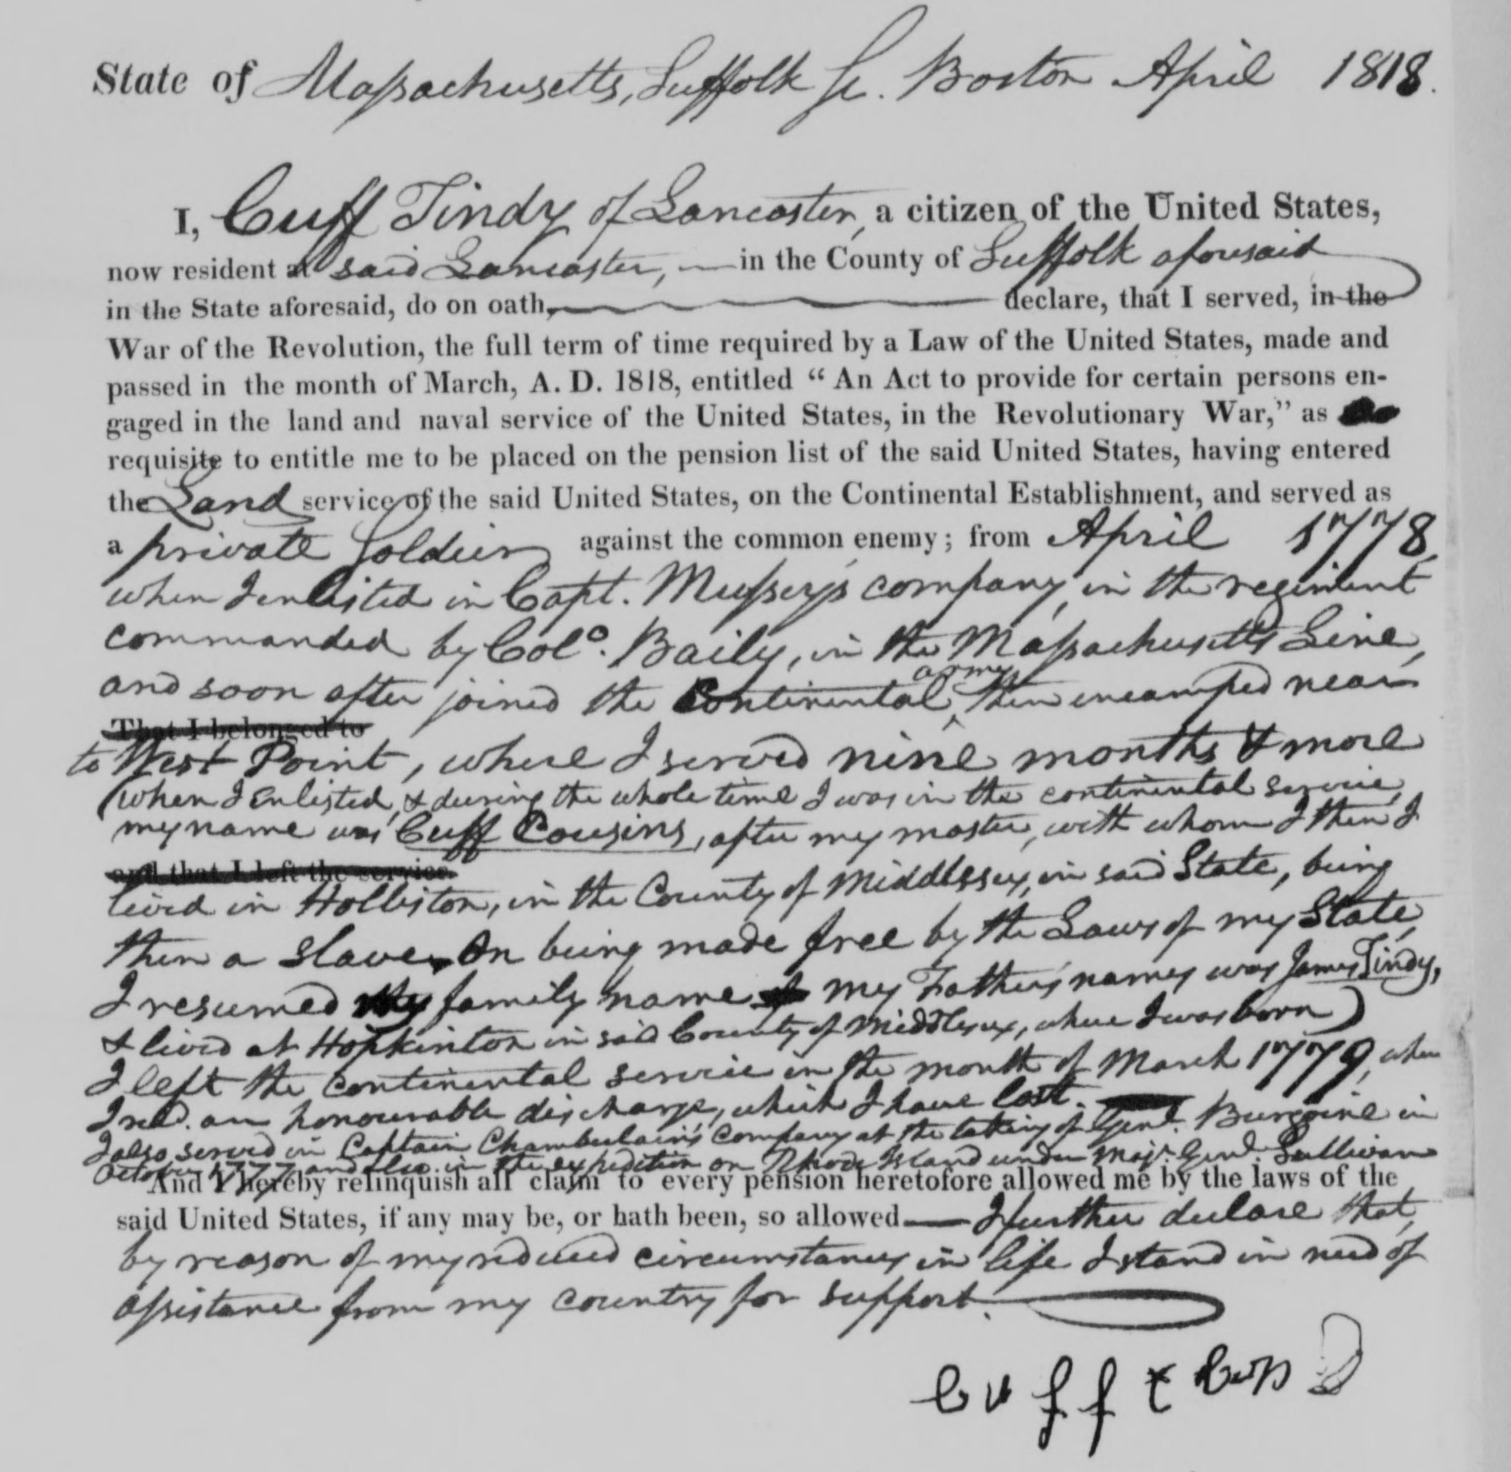 State of Massachusetts, Suffolk Sc. Boston April 1818.
I, Cuff Tindy of Lancaster, a citizen of the United States,
now resident at said Lancaster, — in the County of Suffolk aforesaid
in the State aforesaid, do on oath, declare, that I served, in the
War of the Revolution, the full term of time required by a Law of the United States, made and
passed in the month of March, A. D. 1818, entitled “ An Act to provide for certain persons en-
gaged in the land and naval service of the United States, in the Revolutionary War,” as
requisite to entitle me to be placed on the pension list of the said United States, having entered
the Land service of the said United States, on the Continental Establishment, and served as
a private Soldier against the common enemy; from April 1778,
when I enlisted in Capt. Mussey's company, in the regiment
commanded by Colo. Baily, in the Massachusetts Line,
and soon after joined the Continental army then encamped near
That I belonged to
to West Point, where I served nine months & more
(when I enlisted, & during the whole time I was in the continental service,
my name was Cuff Cousins, after my master, with whom I then I
and that I left the service
lived in Holliston, in the County of Middlesex, in said State, being
then a slave. On being made free by the Laws of my State,
I resumed my family name my Father's names was James Tindy,
& lived at Hopkinton in said County of Middlesex, where I was born)
I left the continental service in the month of March 1779, when
I recd. an honourable discharge, which I have lost.
I also served in Captain Chamberlain's company at the taking of Genl. Burgoine in
October 1777, and also in the expedition on Rhode Island under Majr. Genl. Sullivan
And I hereby relinquish all claim to every pension heretofore allowed me by the laws of the
said United States, if any may be, or hath been, so allowed — I further declare that,
by reason of my reduced circumstances in life I stand in need of
assistance from my country for support.
Cuff